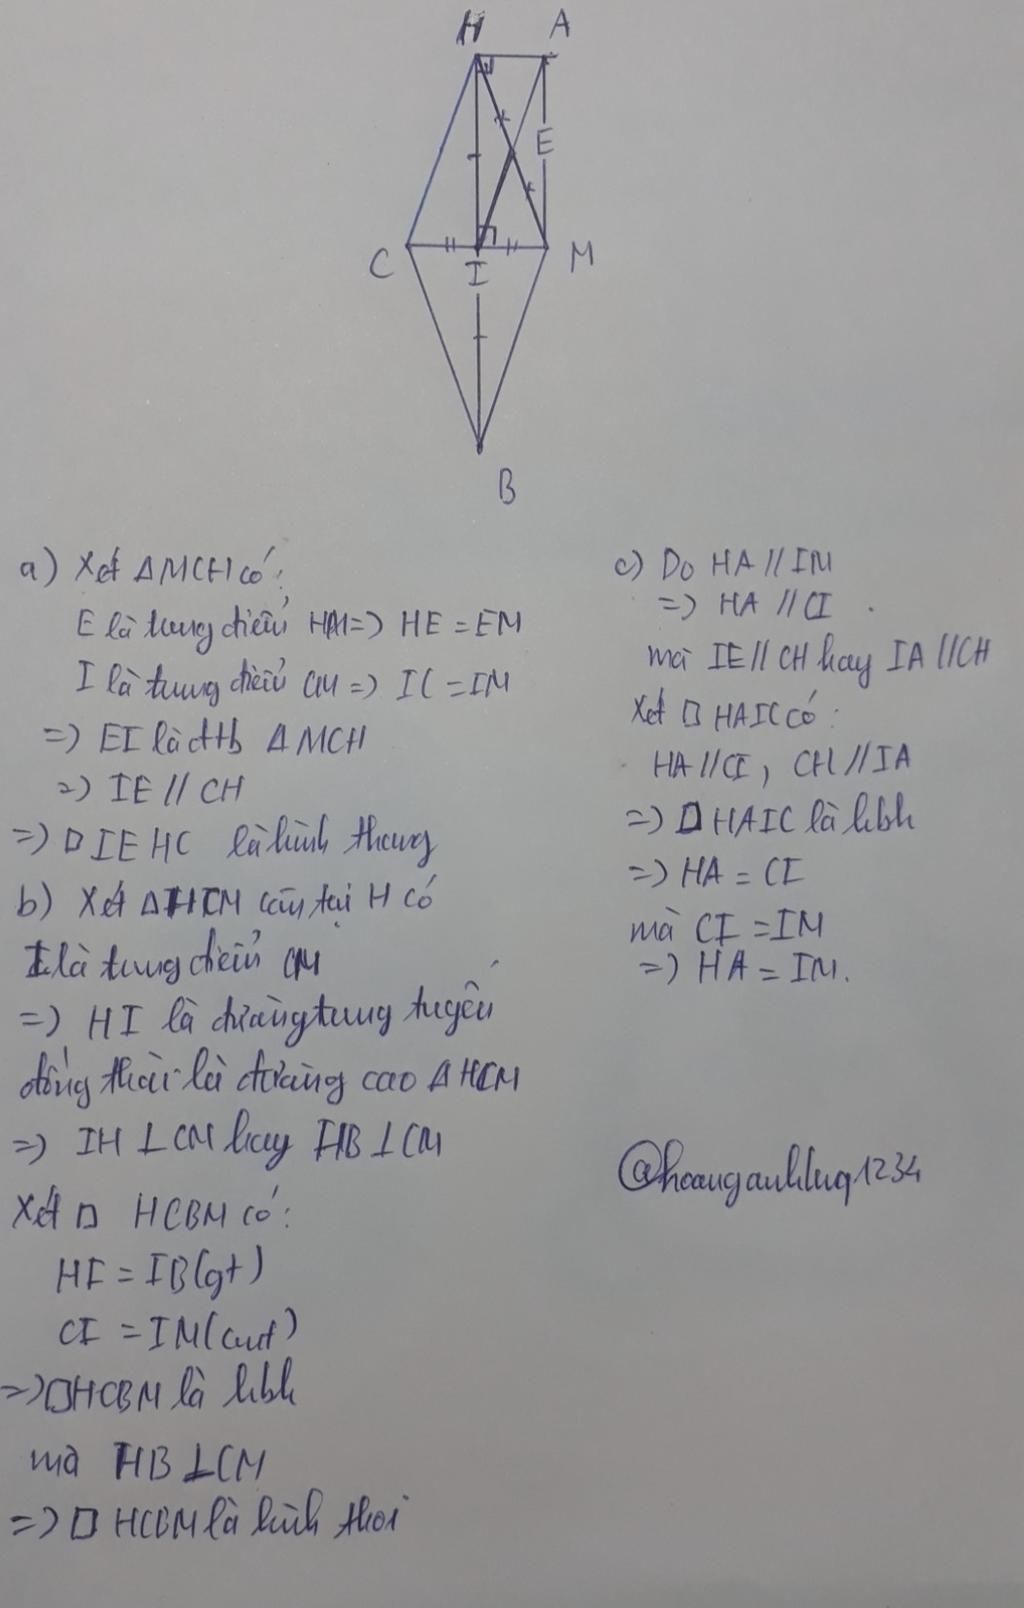 H A
E
C I M
B
a) Xét ΔMCH có:
E là trung điểm HM => HE = EM
I là trung điểm CM => IC = IM
=> EI là đtb ΔMCH
=> IE // CH
=> □ IEHC là hình thang
b) Xét ΔHCM cân tại H có
I là trung điểm CM
=> HI là đường trung tuyến
đồng thời là đường cao ΔHCM
=> IH ⊥ CM hay HB ⊥ CM
Xét □ HCBM có:
HI = IB (gt)
CI = IM (cmt)
=> □ HCBM là hbh
mà HB ⊥ CM
=> □ HCBM là hình thoi
c) Do HA // IM
=> HA // CI
mà IE // CH hay IA // CH
Xét □ HAIC có:
HA // CI, CH // IA
=> □ HAIC là hbh
=> HA = CI
mà CI = IM
=> HA = IM.